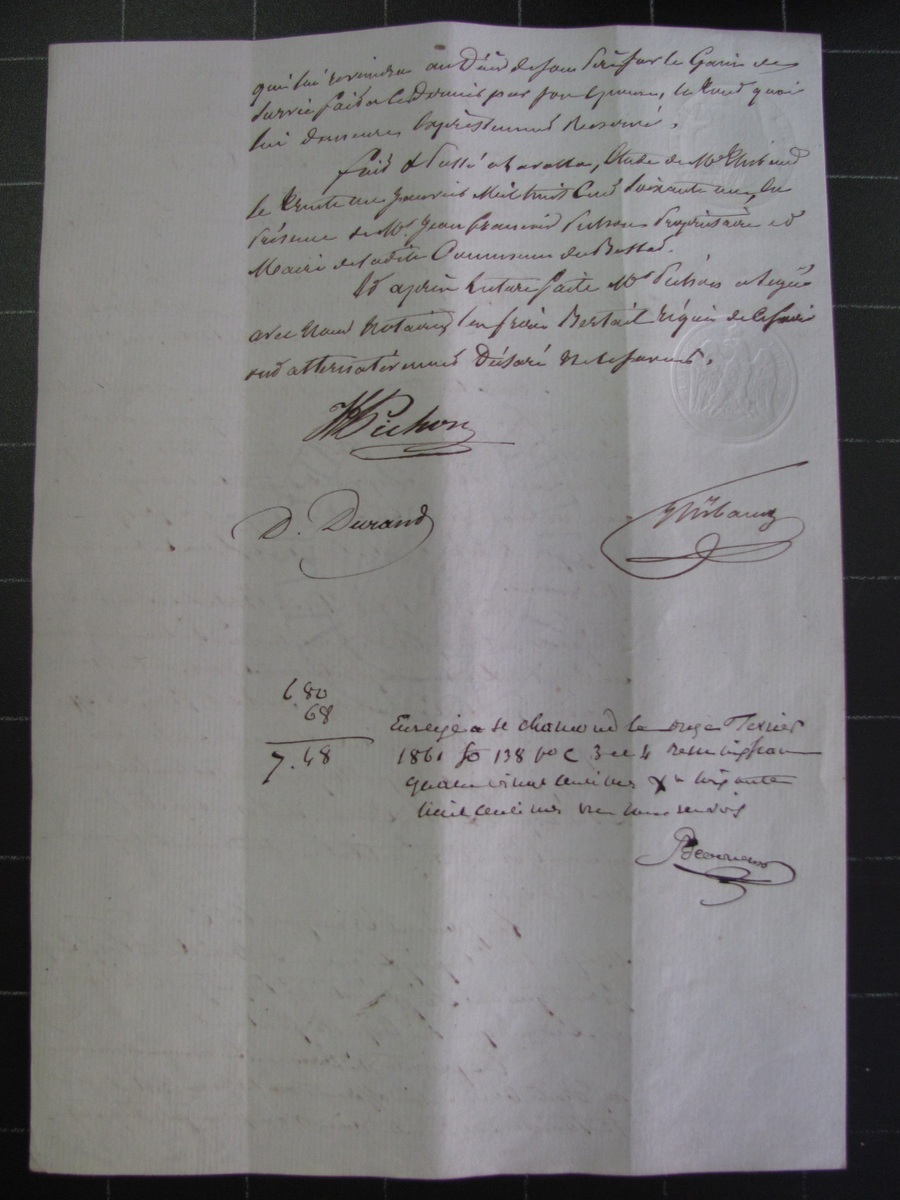 qui lui reviendra au Décès de son Père sur le Gain de
survie fait à ce dernier par son épouse, le tout quoi
lui demeure expressement Réservé.
fait & Passé a Tarantaise, Etude de Me Thibaud
le trente un Janvier Mil huit Cent soixante un, En
présence de Mr Jean François Pichon Propriétaire et
Maire de ladite Commune du Bessat.
Et après lecture faite Mr Pichon a Signé
avec Nous Notaires, les frères Bertail Requis de le faire
ont alternativement Déclaré ne le savoir.
Pichon
D. Durand
Thibaud
680
68
7.48
Enregé a St chamond le onze Fevrier
1861 fo 138 vo C 3 et 4 reçu six francs
quatre vingt centimes & soixante
huit centimes